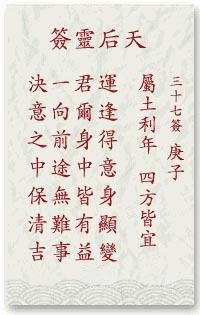 天后靈簽
三十七簽 庚子
屬土利年 四方皆宜
運逢得意身顯變
君爾身中皆有益
一向前途無難事
決意之中保清吉